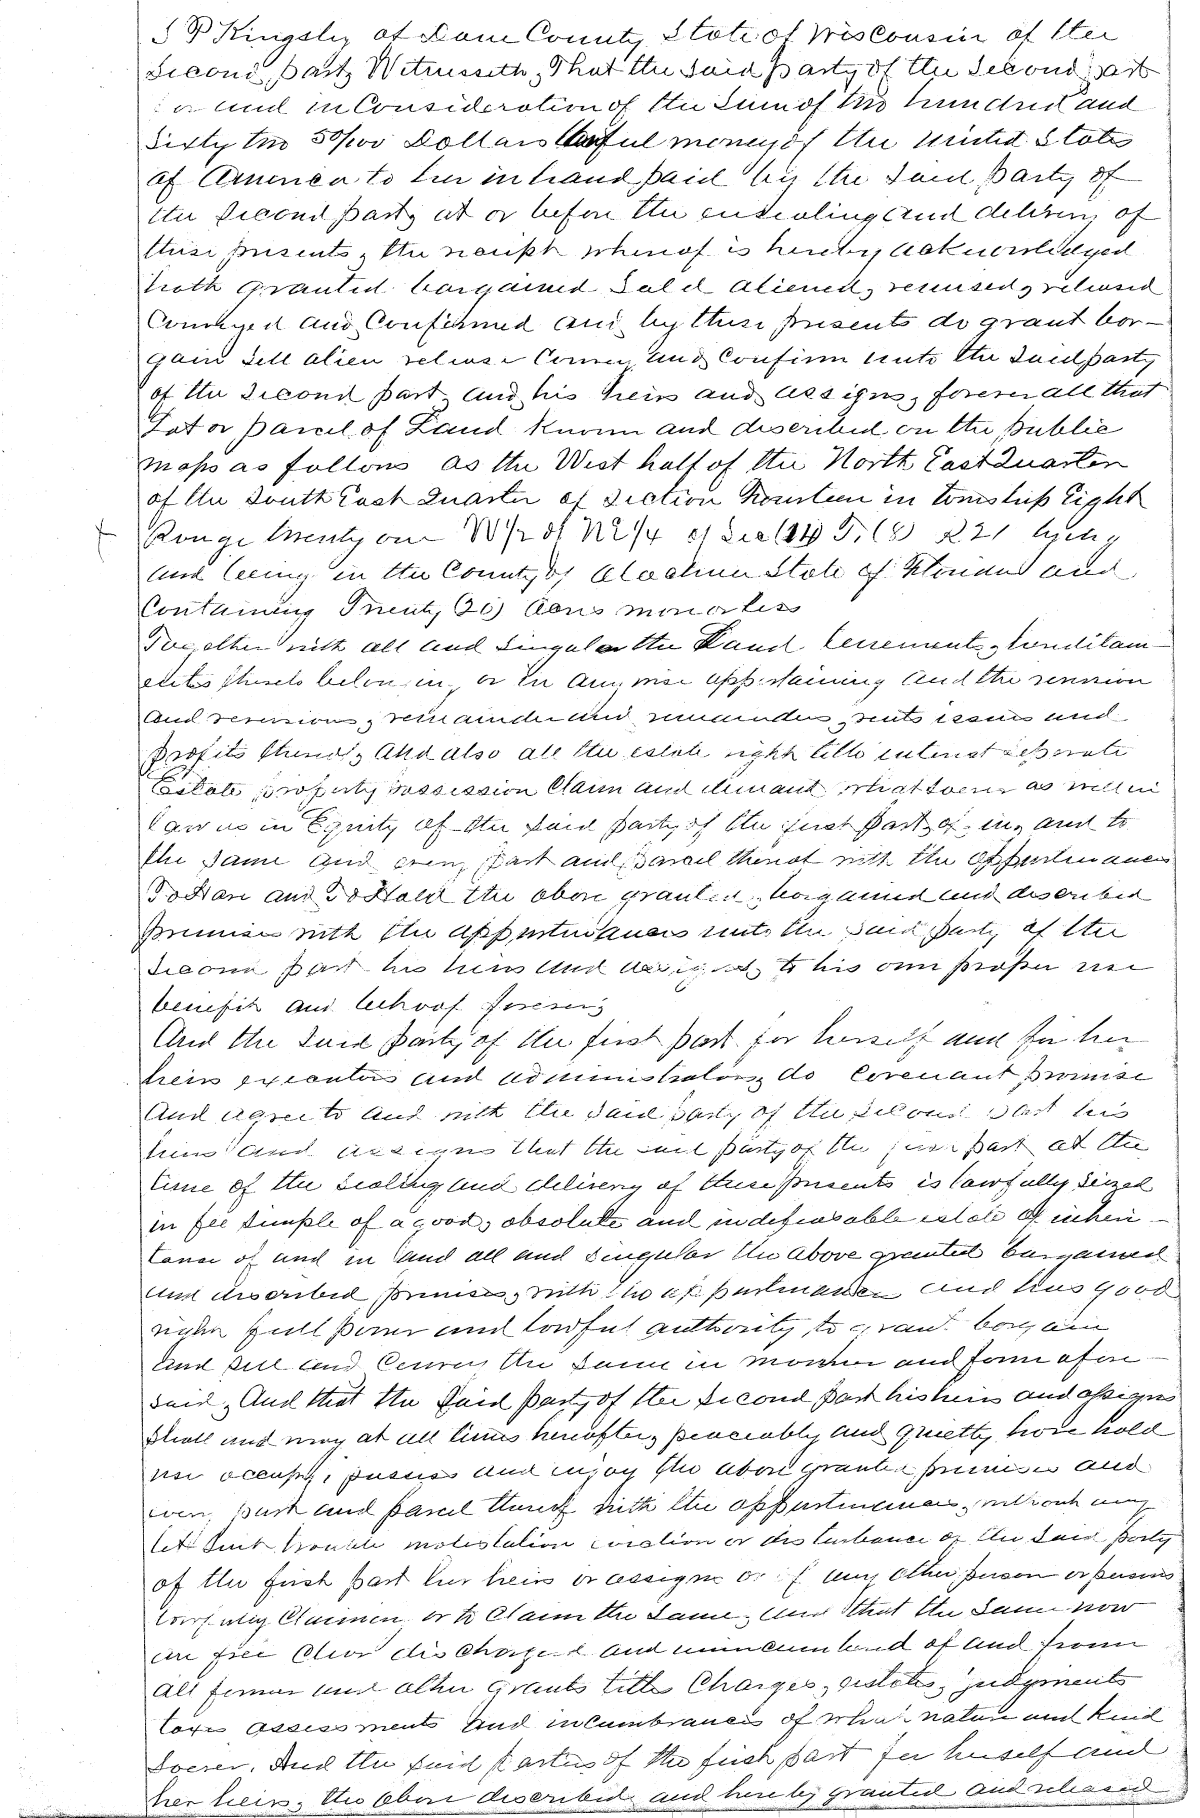 S P Kingsley of Dane County State of Wisconsin of the
Second party Witnesseth, That the Said party of the Second part
and in Consideration of the Sum of two hundred and
Sixty two 50/100 Dollars lawful money of the United States
of America to her in hand paid by the Said party of
the Second party at or before the ensealing and delivery of
these presents, the receipt whereof is hereby acknowledged
hath granted bargained Sold aliened, remised, released
Conveyed and Confirmed and by these presents do grant bar-
gain Sell alien release Convey and Confirm unto the Said party
of the Second part and his heirs and assigns, forever all that
Lot or parcel of Land Known and described on the public
maps as follows as the West half of the North East Quarter
of the South East Quarter of Section Fourteen in township Eight
Range twenty one W1/2 of NE1/4 of Sec (14) T. (8) R 21 lying
and being in the County of Alachua State of Florida and
Containing Twenty (20) Acres more or less
Together with all and Singular the Land tenements, heriditam-
ents thereto belonging or in any wise appertaining and the revision
and reversions, remainder and remainders, rents issues and
profits thereof, And also all the estate right title interest seperate
Estate property possession Claim and demand whatsoever as well in
law as in Equity of the Said party of the first part, of, in, and to
the Same and every part and parcel thereof with the appurtenances
To Have and To Hold the above granted, bargained and described
premises with the appurtenances unto the Said party of the
Second part his heirs and assigns, to his own proper use
benefit and behoof forever,
And the Said party of the first part for herself and for her
heirs executors and administrators do Covenant promise
And agree to and with the Said party of the Second part his
heirs and assigns that the said party of the first part at the
time of the Sealing and delivery of these presents is lawfully Seized
in fee Simple of a good, absolute and indefeasable estate of inheri-
tance of and in and all and Singular the above granted bargained
and described premises, with the appurtenances and has good
right full power and lawful authority to grant bargain
and Sell and Convey the Same in manner and form afore-
said, And that the Said party of the Second part his heirs and assigns
Shall and may at all times hereafter, peaceably and quietly have hold
use occupy, possess and enjoy the above granted premises and
every part and parcel thereof with the appurtenances, without any
let Suit trouble molestation eviction or disturbance of the Said party
of the first part her heirs or assigns or of any other person or persons
lawfully Claiming or to Claim the Same, and that the Same now
are free Clear discharged and unincumbered of and from
all former and other grants title Charges, estates, judgments
taxes assessments and incumbrances of what nature and kind
Soever. And the Said parties of the first part for herself and
her heirs, the above described and hereby granted and released